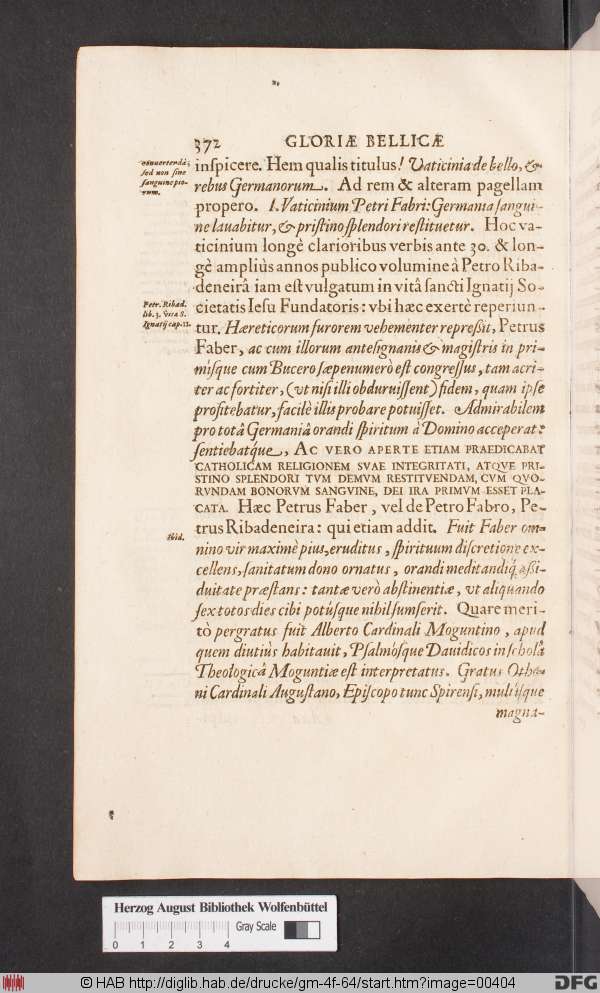 372 GLORIÆ BELLICÆ
conuertendã;
sed non sine
sanguine pio-
rum.
inſpicere. Hem qualis titulus! Vaticinia de bello, &
rebus Germanorum. Ad rem & alteram pagellam
propero. I. Vaticinium Petri Fabri: Germania ſangui-
ne lauabitur, & priſtino ſplendori reſtituetur. Hoc va-
ticinium longè clarioribus verbis ante 30. & lon-
gè ampliùs annos publico volumine à Petro Riba-
deneirâ iam eſt vulgatum in vitâ ſancti Ignatij So-
Petr. Ribad.
lib. 3. vita S.
Ignatij cap. 11.
cietatis Ieſu Fundatoris: vbi hæc exertè reperiun-
tur. Hæreticorum furorem vehementer repreßit, Petrus
Faber, ac cum illorum anteſignanis & magiſtris in pri-
míſque cum Bucero ſæpenumerò eſt congreſſus, tam acri-
ter ac fortiter, (vt niſi illi obduruiſſent) fidem, quam ipſe
profitebatur, facilè illis probare potuiſſet. Admirabilem
pro totâ Germaniâ orandi ſpiritum à Domino acceperat:
ſentiebatque, AC VERO APERTE ETIAM PRAEDICABAT
CATHOLICAM RELIGIONEM SVAE INTEGRITATI, ATQVE PRI-
STINO SPLENDORI TVM DEMVM RESTITVENDAM, CVM QVO-
RVNDAM BONORVM SANGVINE, DEI IRA PRIMVM ESSET PLA-
CATA. Hæc Petrus Faber, vel de Petro Fabro, Pe-
trus Ribadeneira: qui etiam addit. Fuit Faber om-
Ibid.
nino vir maximè pius, eruditus, ſpirituum diſcretione ex-
cellens, ſanitatum dono ornatus, orandi meditandiq́; aßi-
duitate præſtans: tantæ verò abſtinentiæ, vt aliquando
ſex totos dies cibi potúſque nihil ſumſerit. Quare meri-
tò pergratus fuit Alberto Cardinali Moguntino, apud
quem diutiùs habitauit, Pſalmóſque Dauidicos in ſcholâ
Theologicâ Moguntiæ eſt interpretatus. Gratus Otho-
ni Cardinali Auguſtano, Epiſcopo tunc Spirenſi, multíſque
magna-
Herzog August Bibliothek Wolfenbüttel
0 1 2 3 4 Gray Scale
© HAB http://diglib.hab.de/drucke/gm-4f-64/start.htm?image=00404
DFG